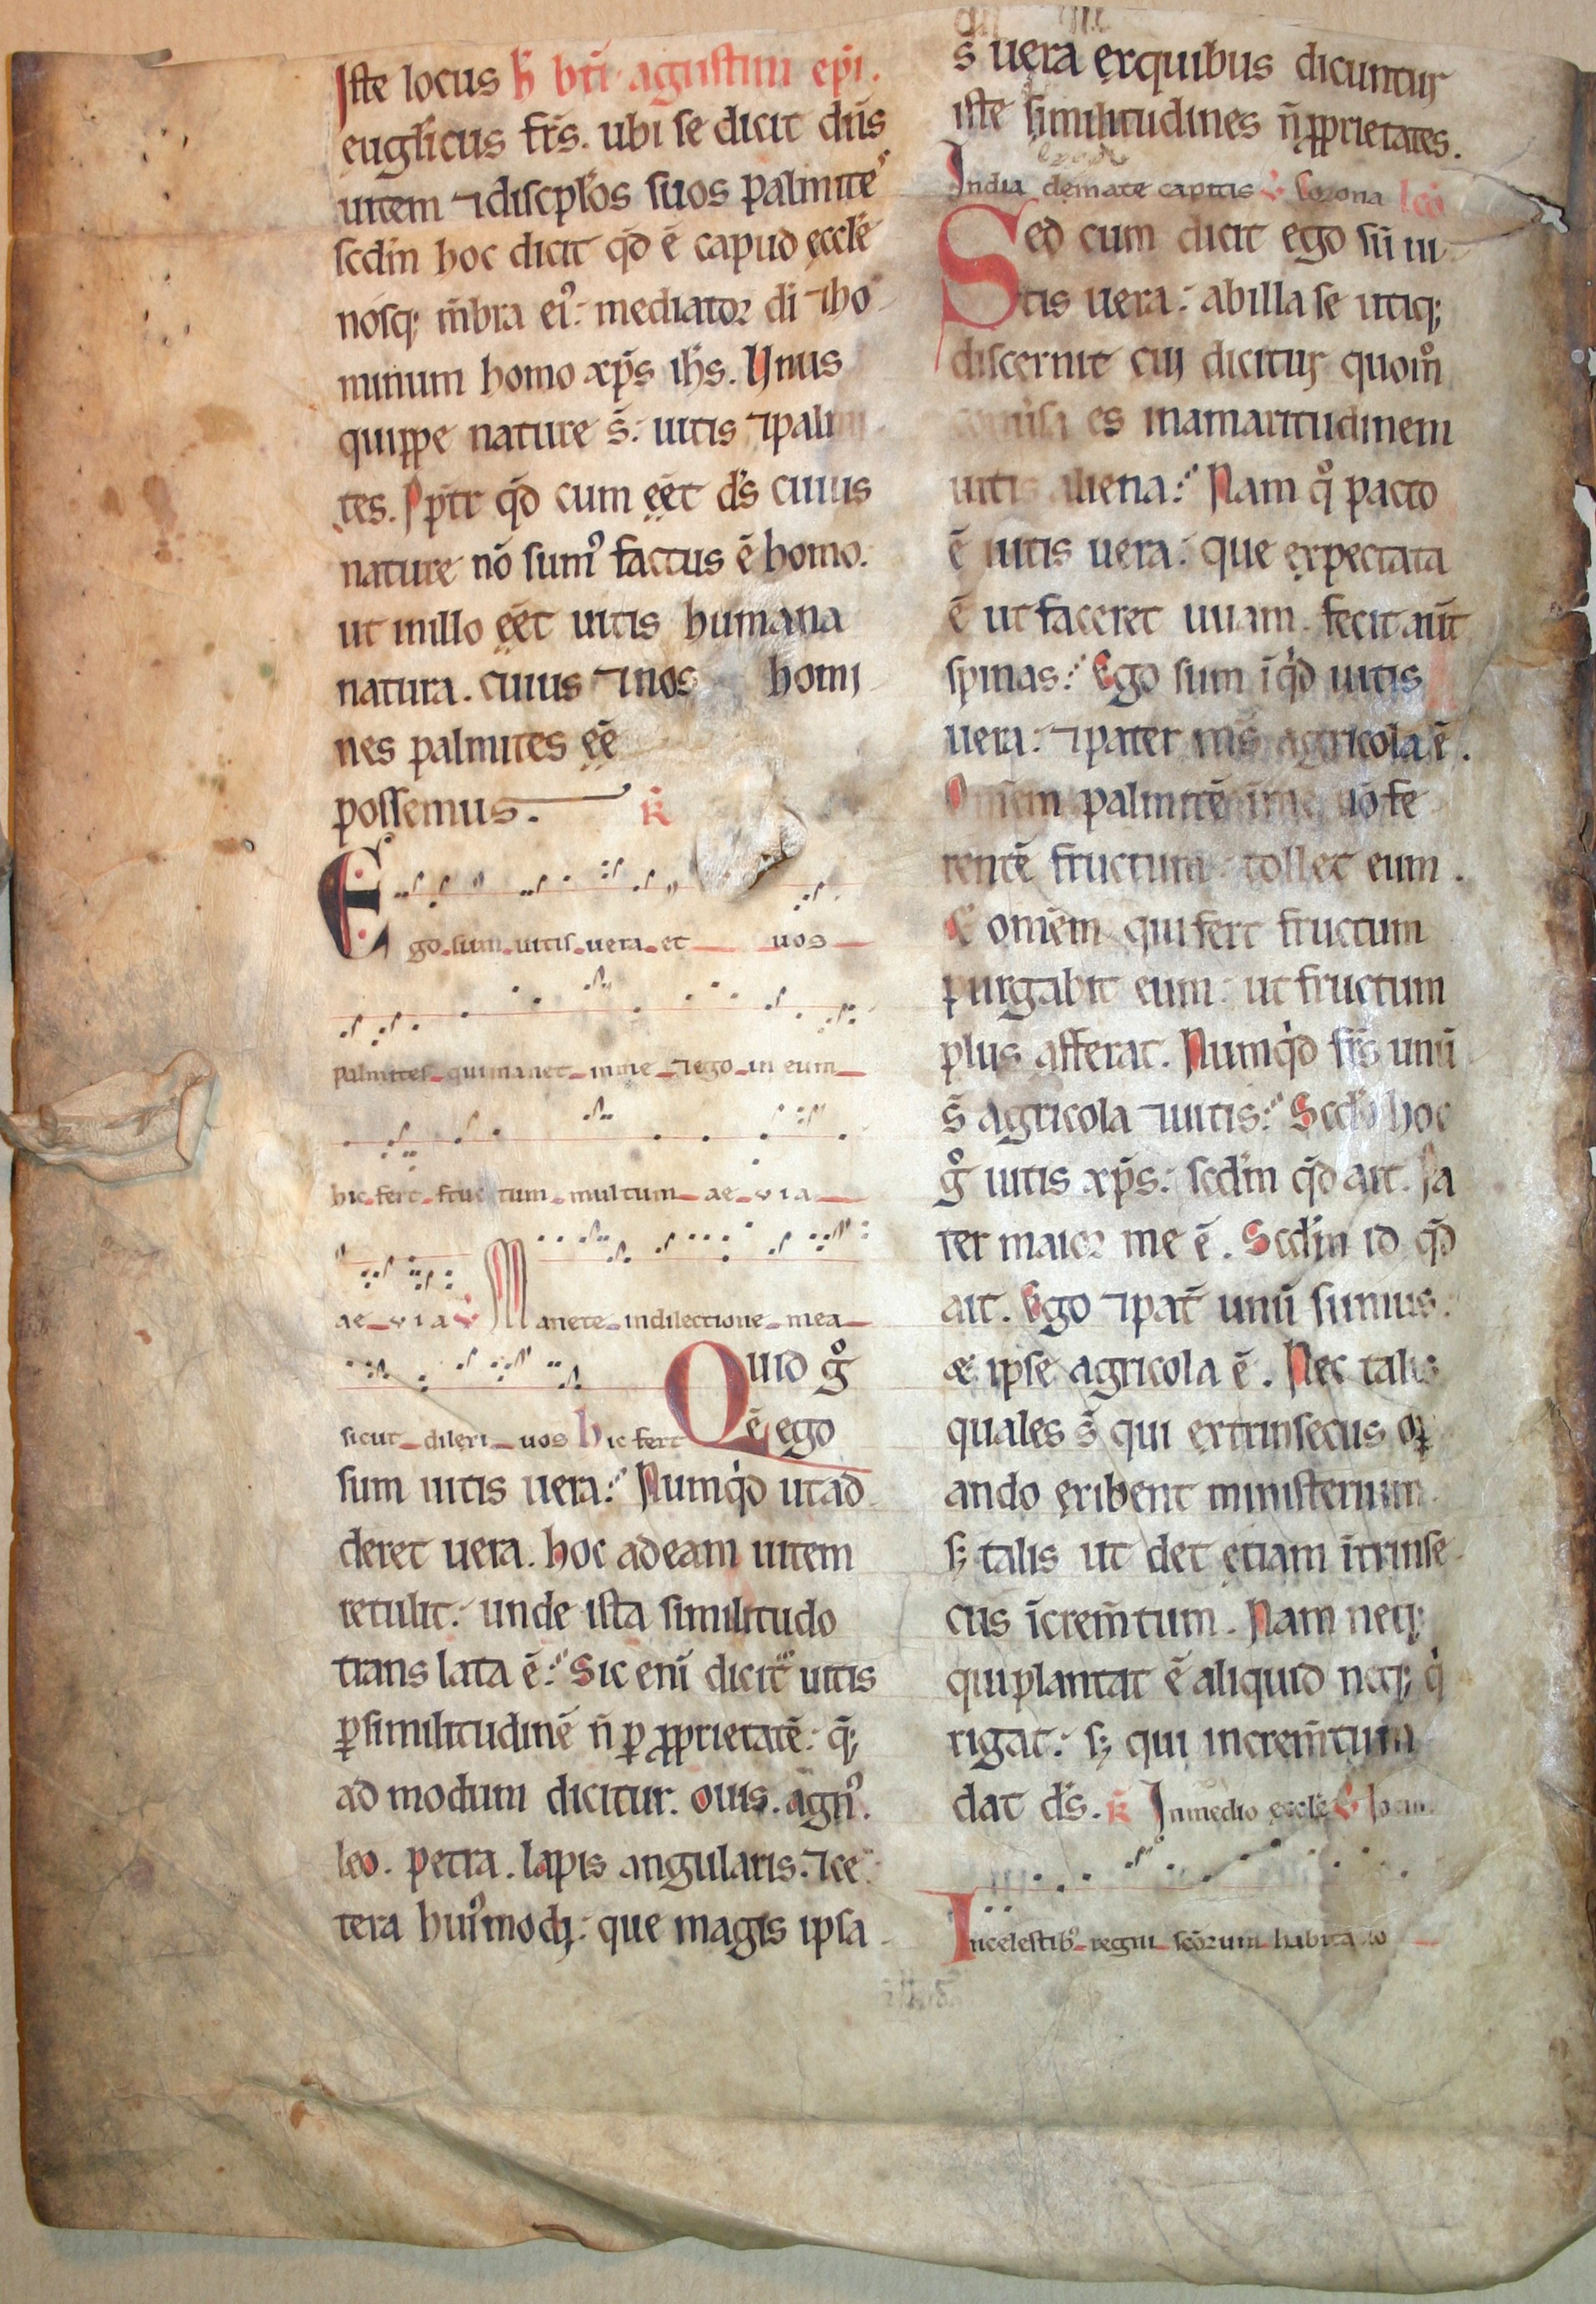 Iste locus h̅ bti̅ agustini epi̅.
euglicus fr̅s. ubi se dicit dn̅s
uitem ⁊ discplos suos palmite
scdm hoc dicit qd̅ ē capud eccle̅
nosq; m̅bra ei⁹: mediator di̅ ⁊ ho
minum homo xp̅s ih̅s. Unus
quippe nature s̅: uitis ⁊ pali
tes. Ppt̅r qd̅ cum ee̅t ds̅ cuius
nature nō sum⁹ factus ē homo.
ut in illo ee̅t uitis humana
natura. cuius ⁊ nos homi
nes palmites ee̅
possemus. R̅
Ego sum uitis uera et uos
palmites qui manet in me ⁊ ego in eum
hic fert fructum multum ae via
ae via V Manete in dilectione mea
Quid g̊
sicut dilexi uos hic fert ē ego
sum uitis uera: Numqd̅ ut ad
deret uera. hoc ad eam uitem
retulit: unde ista similitudo
trans lata ē: Sic eni̅ dicit᷑ uitis
ꝑ similitudinē n̅ ꝑ ꝓprietatē: q̅;
ad modum dicitur. ouis. agn⁹.
leo. petra. lapis angularis. ⁊ ce
tera hui⁹modi: que magis ipsa
s̅ uera ex quibus dicuntur
iste similitudines n̅ ꝓprietates.
In diademate capitis V Corona leo̅
Sed cum dicit ego su̅ ui
tis uera: ab illa se utiq;
discernit cui dicitur quom̊
es in amaritudinem
uitis aliena: Nam q̊ pacto
ē uitis uera: que expectata
ē ut faceret uuam. fecit aut̅
spinas: Ego sum iqd̅ uitis
uera: ⁊ pater ms̅ agricola ē.
Omēm palmitē i̅ me nō fe
rentē fructum: tollet eum.
Et omēm qui fert fructum
purgabit eum: ut fructum
plus afferat. Numqd̅ frs̅ unu̅
s̅ agricola ⁊ uitis: Scdm hoc
g̊ uitis xp̅s: scdm qd̅ ait. Pa
ter maior me ē. Scdm id qd̅
ait. Ego ⁊ pat̅ unu̅ sumus:
æ ipse agricola ē. Nec talis
quales s̅ qui extrinsecus oꝑ
ando exibent ministerium
s; talis ut det etiam i̅trinse
cus i̅crem̅tum. Nam neq;
qui plantat ē aliquid neq; q̍
rigat: s; qui increm̅tum
dat ds̅. R̅ In medio eccle̅ V Iocun
In celestib⁹ regni sc̅orum habitatio